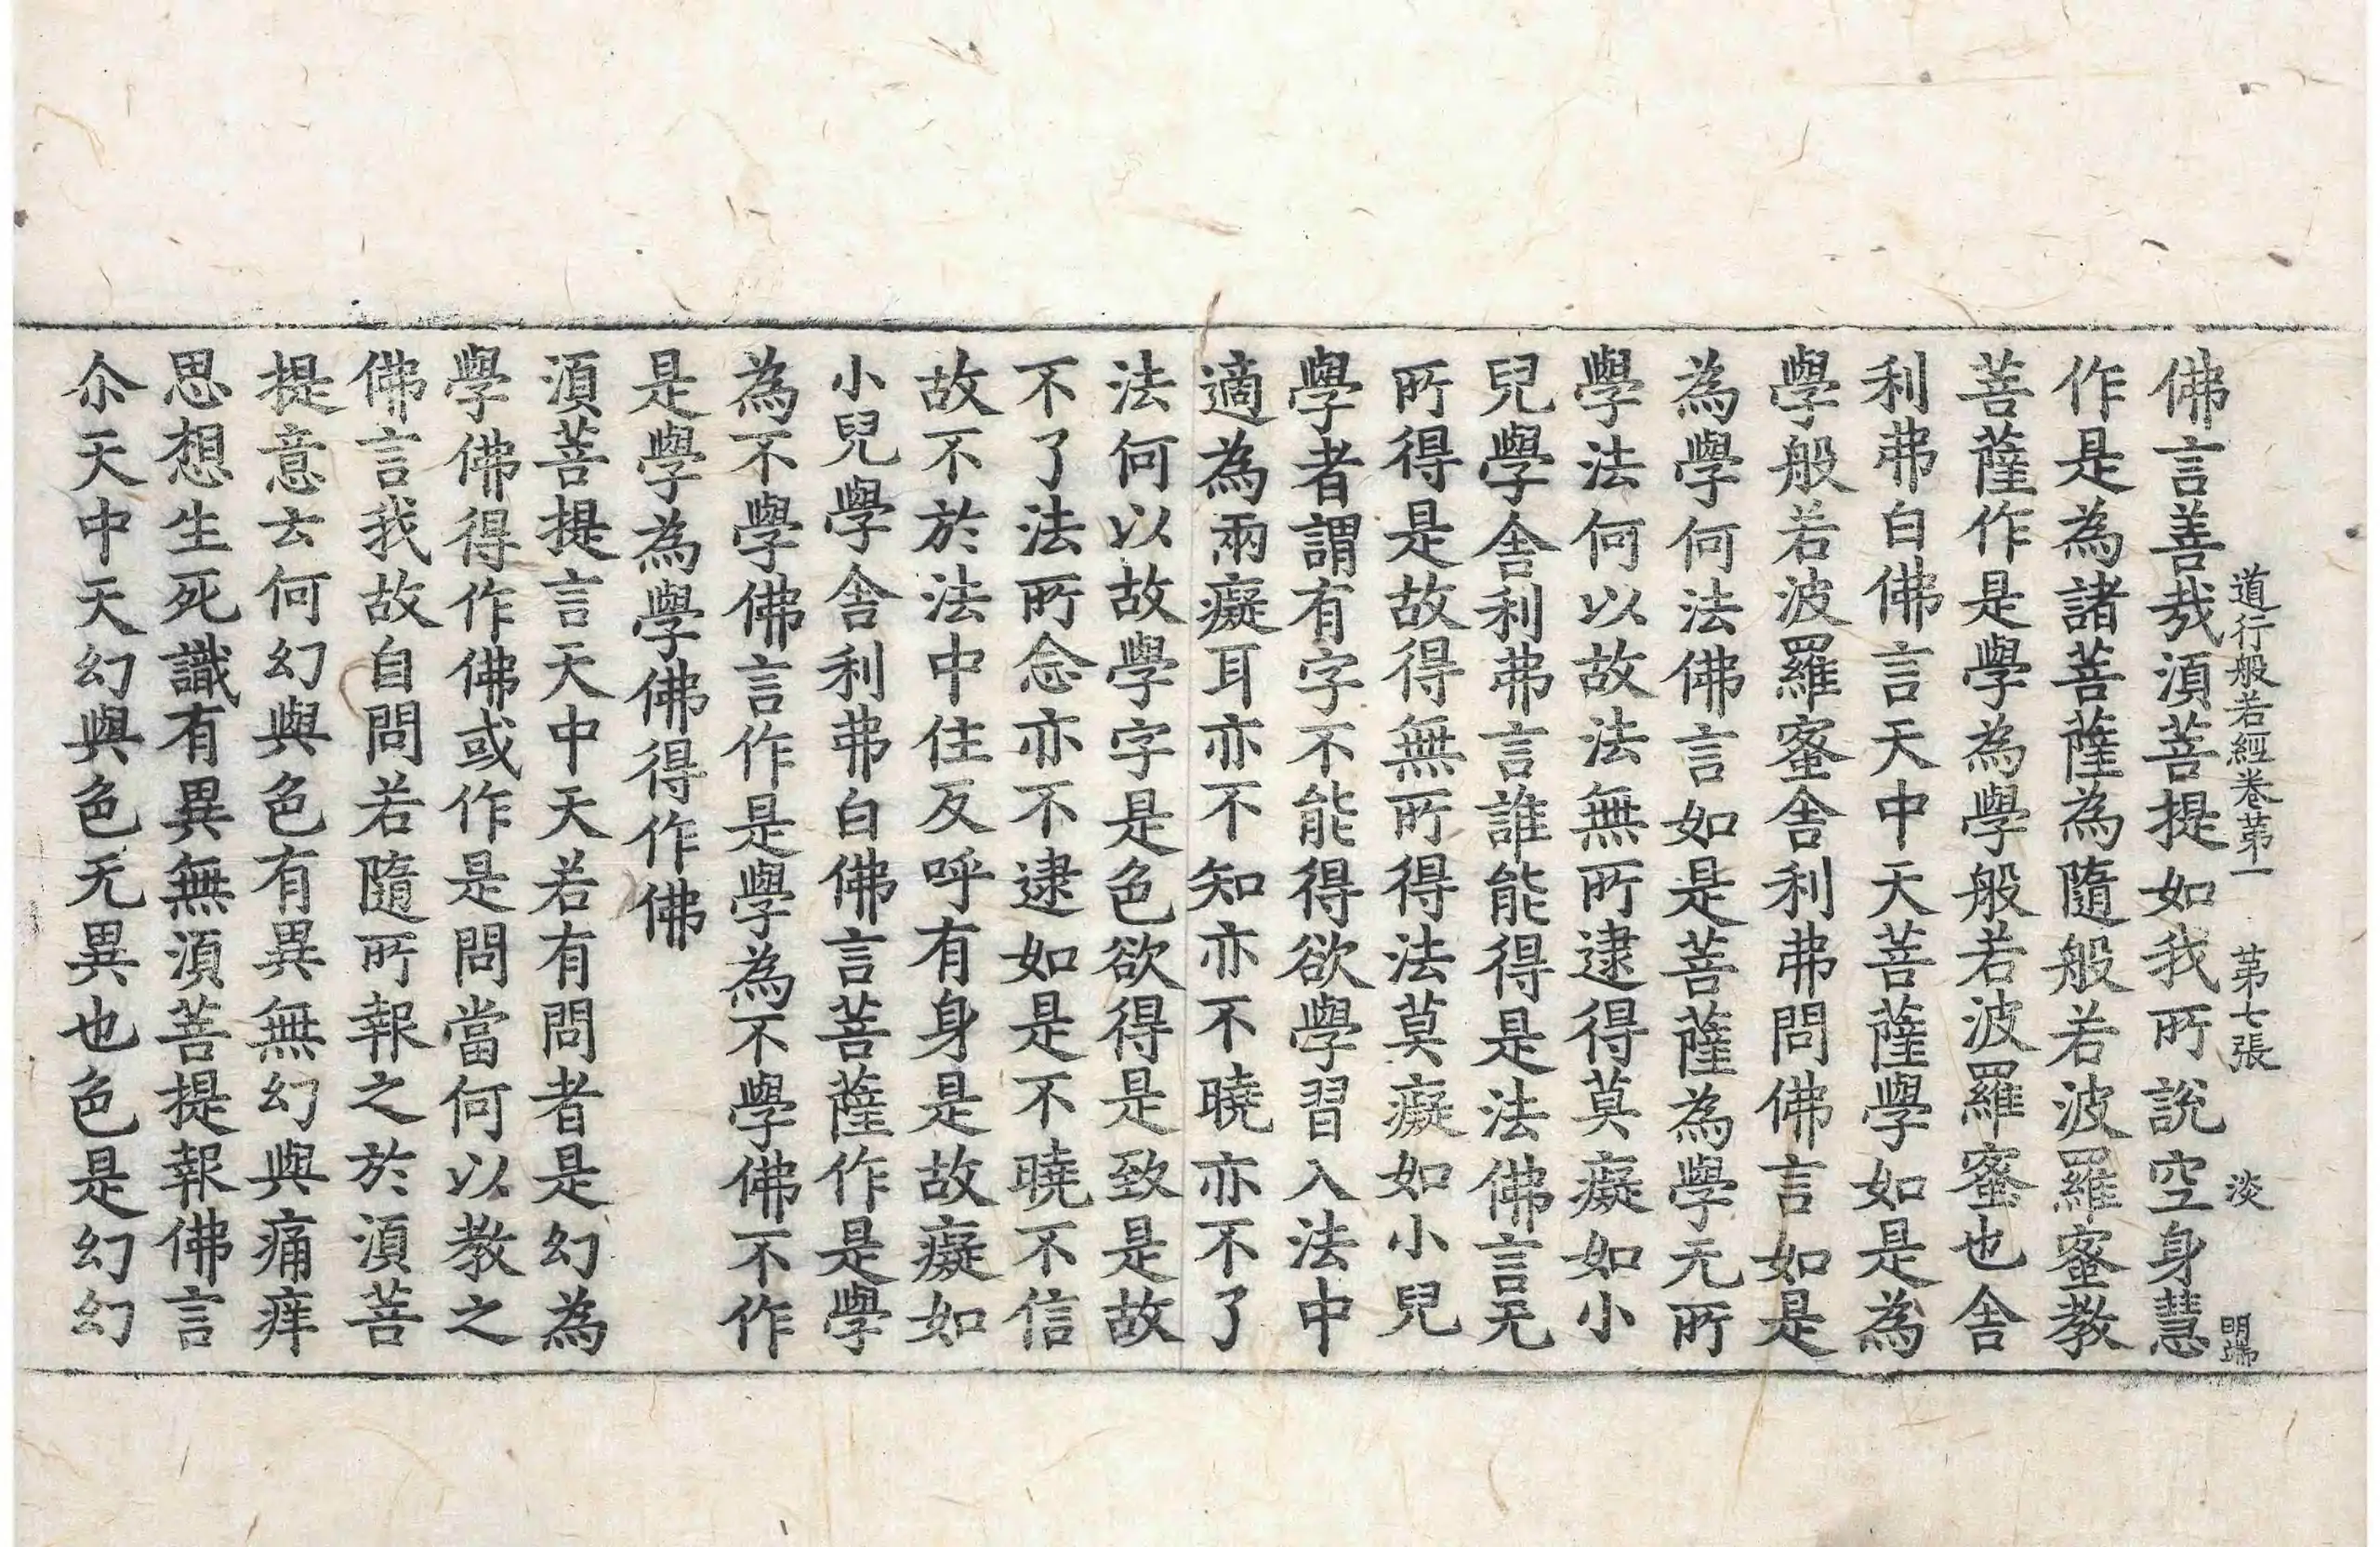 道行般若經卷苐一 苐七張 淡 明端
佛言善㢤湏菩提如我所說空身慧
作是為諸菩薩為隨般若波羅蜜教
菩薩作是學為學般若波羅蜜也舎
利弗白佛言天中天菩薩學如是為
學般若波羅蜜舎利弗問佛言如是
為學何法佛言如是菩薩為學无所
學法何以故法無所逮得莫癡如小
兒學舎利弗言誰能得是法佛言无
所得是故得無所得法莫癡如小兒
學者謂有字不能得欲學習入法中
適為兩癡耳亦不知亦不曉亦不了
法何以故學字是色欲得是致是故
不了法所念亦不逮如是不曉不信
故不於法中住反呼有身是故癡如
小兒學舎利弗白佛言菩薩作是學
為不學佛言作是學為不學佛不作
是學為學佛得作佛
湏菩提言天中天若有問者是幻為
學佛得作佛或作是問當何以教之
佛言我故自問若隨所報之於湏菩
提意云何幻與色有異無幻與痛痒
思想生死識有異無湏菩提報佛言
尒天中天幻與色无異也色是幻幻